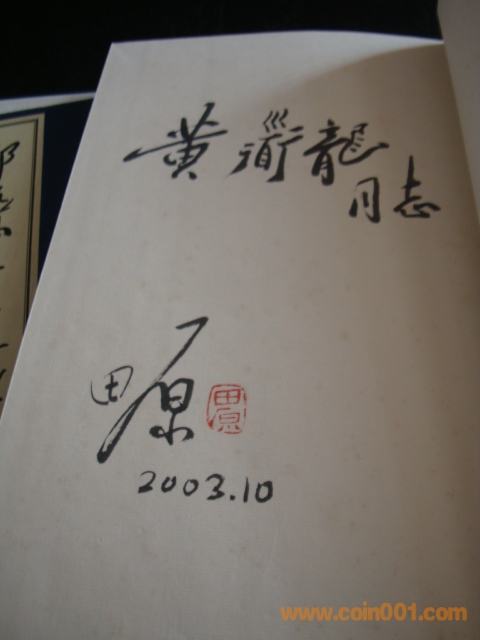 黄衟龍
同志
田原
田原
2003.10
www.coin001.com